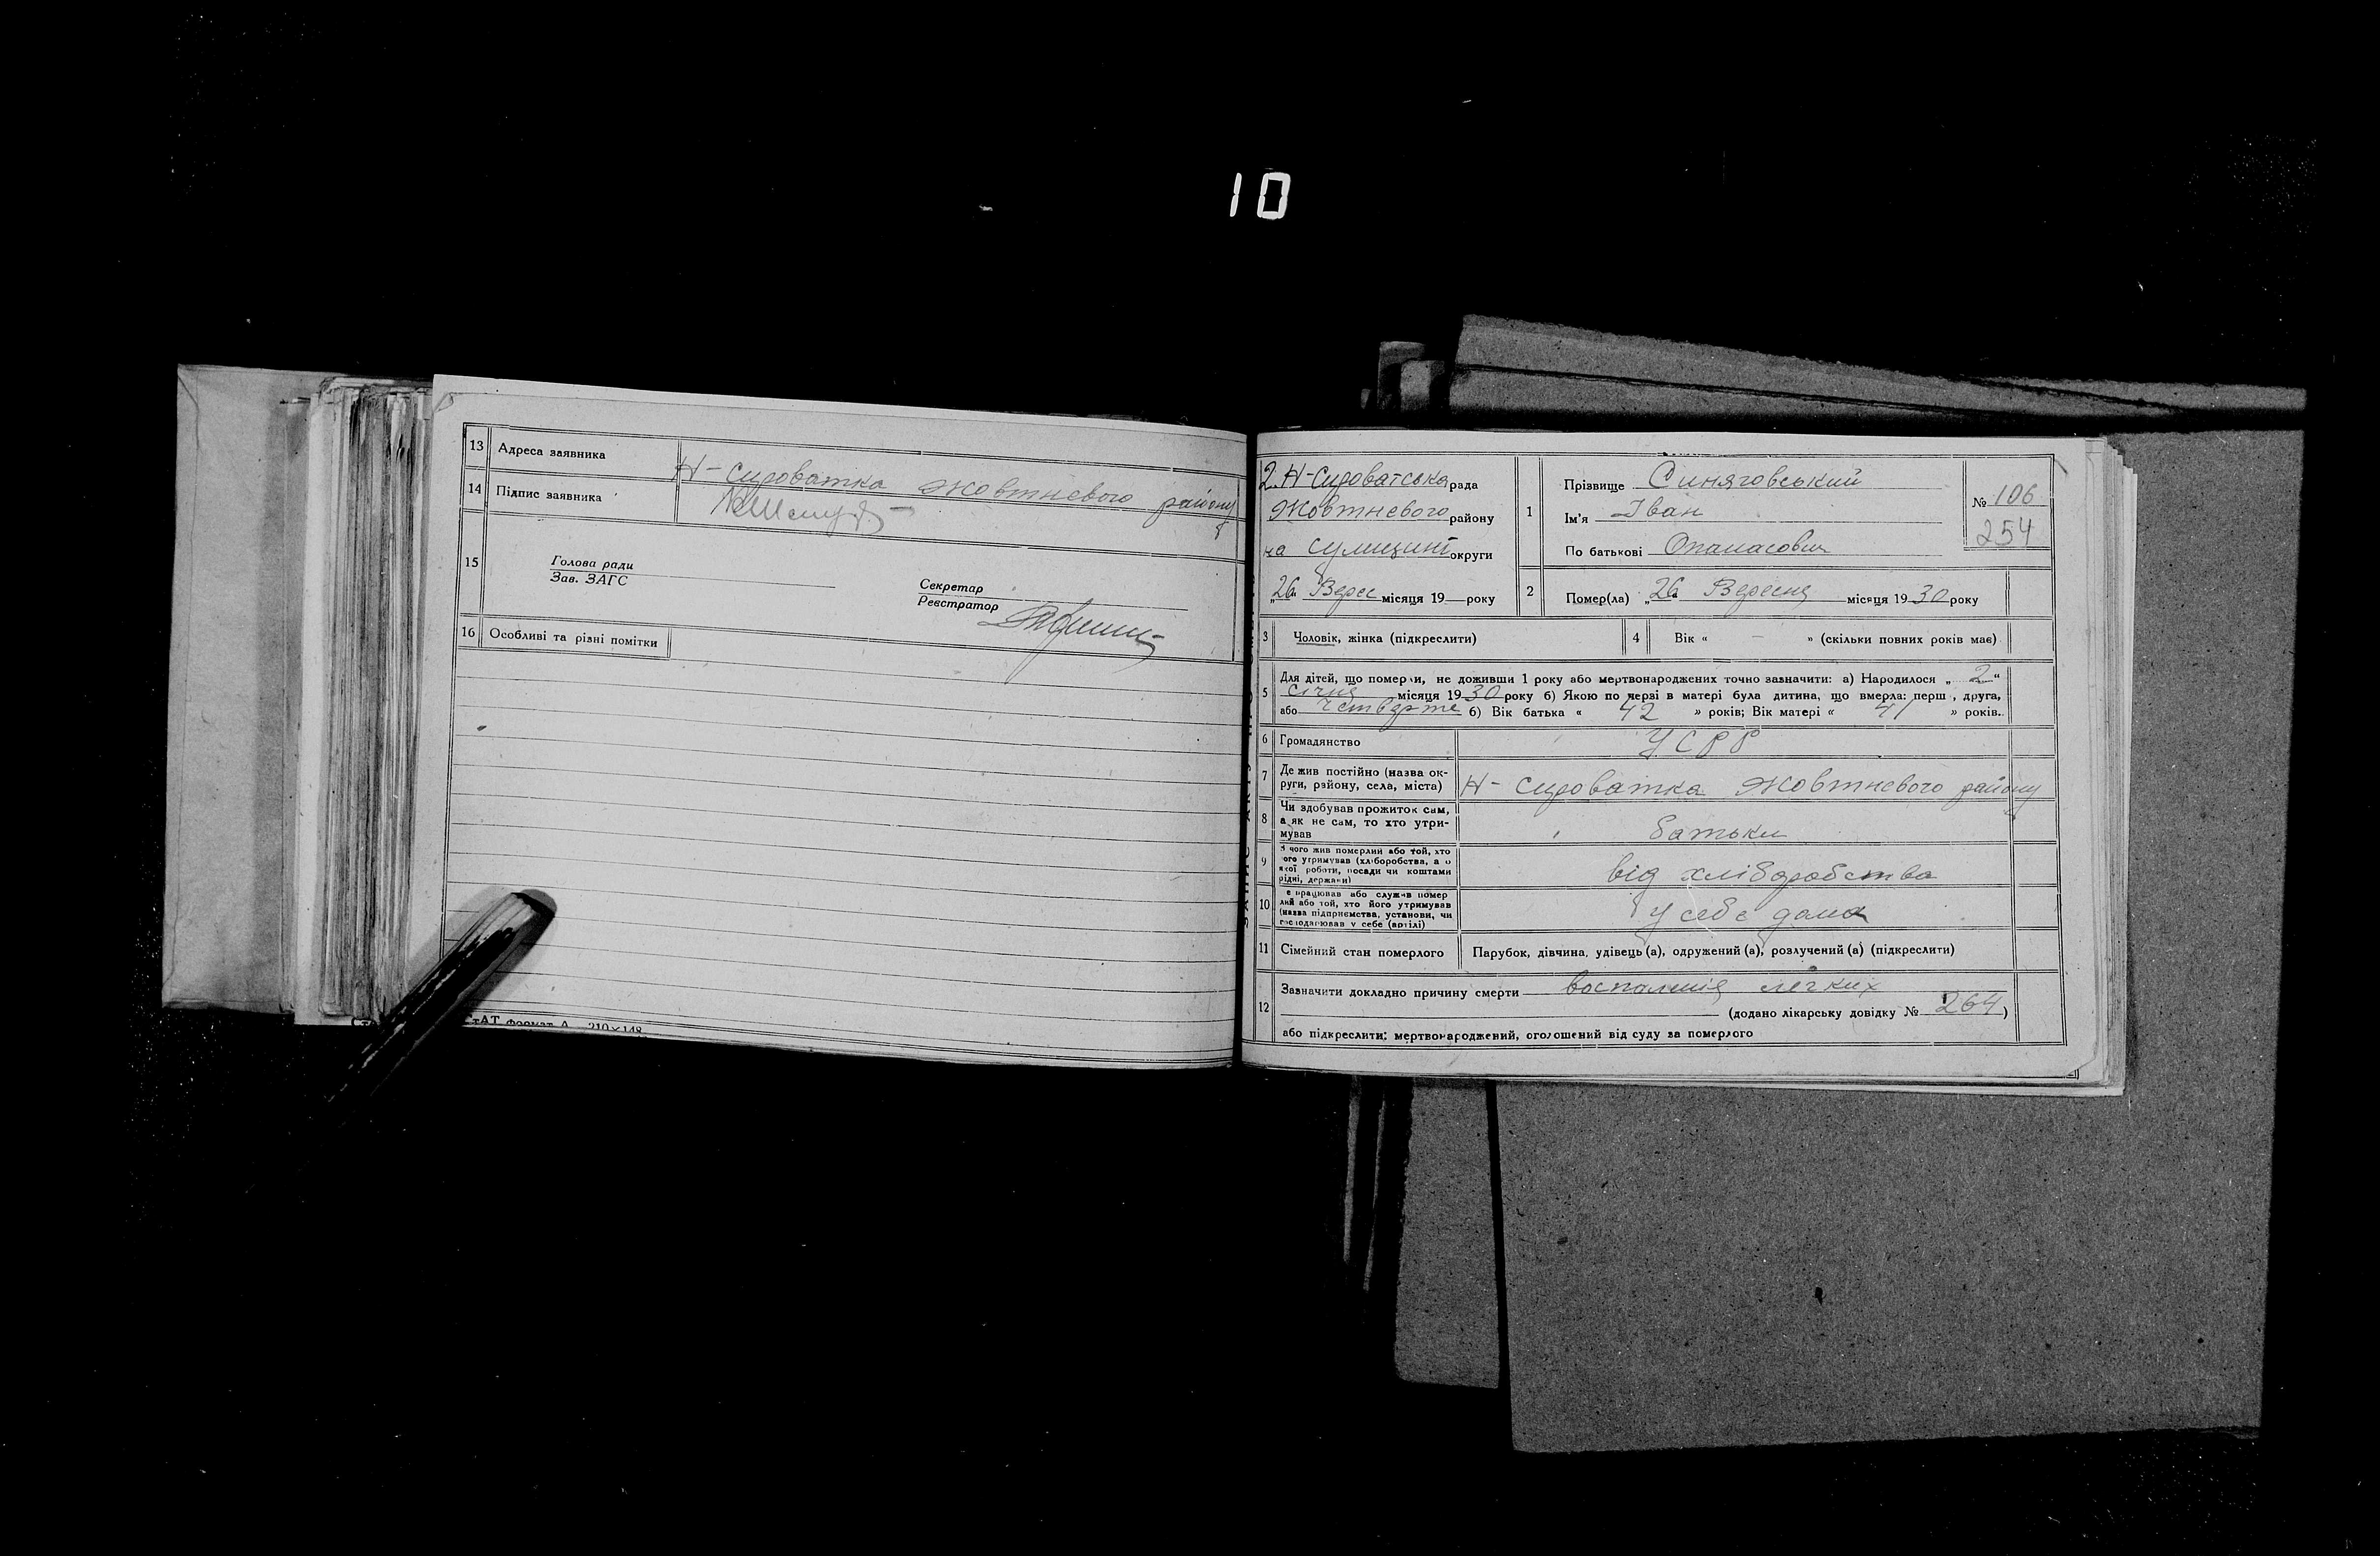 10
13 Адреса заявника Н-Сироватка Жовтневого району
14 Підпис заявника
15
Голова ради
Зав. ЗАГС
Секретар
Реєстратор
16 Особливі та різні помітки
СТАТ формат А 210×148
2. Н-Сироватська рада
Жовтневого району
на Сумщині округи
„26" Верес місяця 19 року
1 Прізвище Синяговський
Ім'я Іван
По батькові Опанасович
№ 106
254
2 Помер(ла) „26" Вересня місяця 1930 року
3 Чоловік, жінка (підкреслити)
4 Вік « — » (скільки повних років має)
5 Для дітей, що померли, не доживши 1 року або мертвонароджених точно зазначити: а) Народилося „2"
січня місяця 1930 року б) Якою по черзі в матері була дитина, що вмерла: перш , друга,
або четверте б) Вік батька « 42 » років; Вік матері « 41 » років.
6 Громадянство УСРР
7 Де жив постійно (назва ок-
руги, району, села, міста) Н-Сироватка Жовтневого району
8 Чи здобував прожиток сам,
а як не сам, то хто утри-
мував батьки
9 З чого жив померлий або той, хто
його утримував (хліборобства, а о
якої роботи, посади чи коштами
рідні, держави) від хліборобства
10 е працював або служив помер
лий або той, хто його утримував
(назва підприємства, установи, чи
господарював у себе (артілі) у себе дома
11 Сімейний стан померлого Парубок, дівчина, удівець (а), одружений (а), розлучений (а) (підкреслити)
12 Зазначити докладно причину смерти воспаления легких
(додано лікарську довідку № 264)
або підкреслити: мертвонароджений, оголошений від суду за померлого